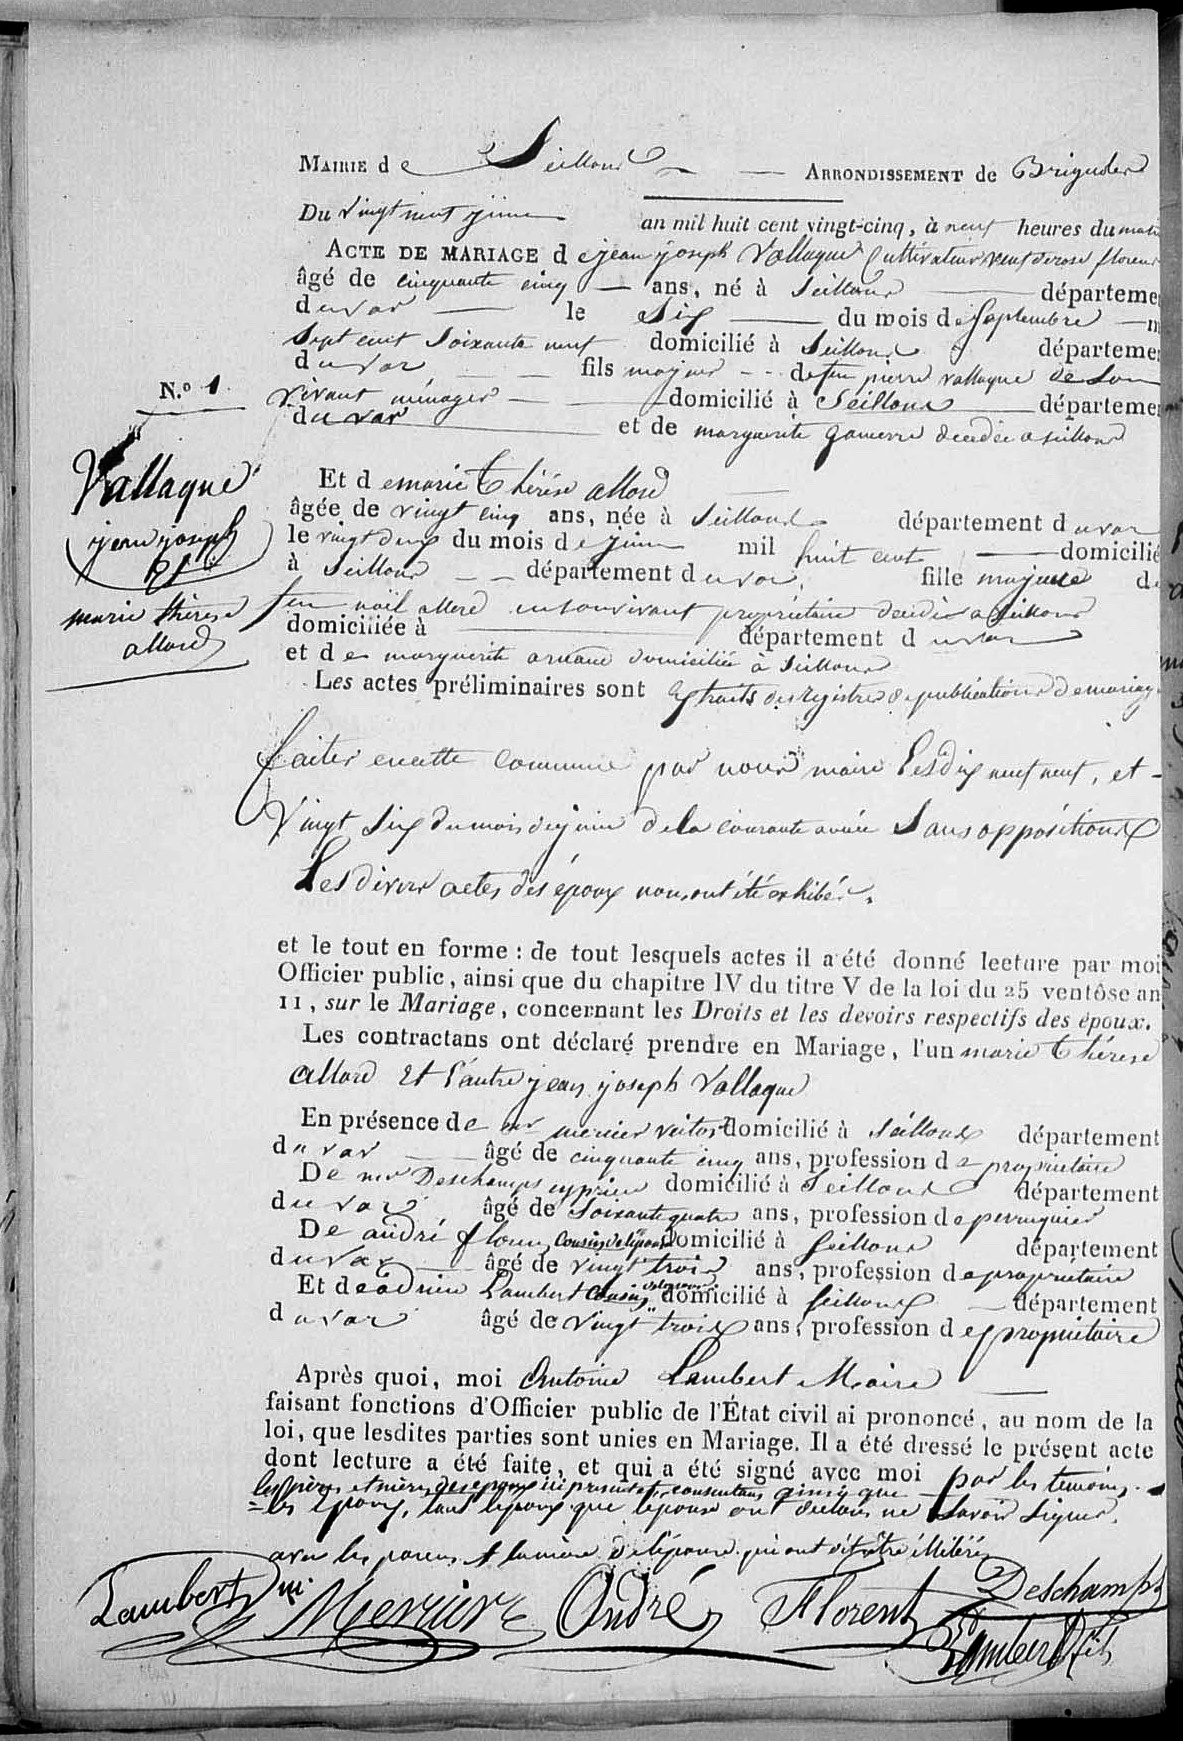 Mairie de Seillons — Arrondissement de Brignoles
Du vingt neuf juin an mil huit cent vingt-cinq, à neuf heures du matin
Acte de mariage de jean joseph Vallaque Cultivateur veuf de rose florens
âgé de cinquante cinq — ans, né à Seillons — départeme
du var — le Six — du mois de Septembre — m
Sept cent Soixante neuf domicilié à Seillons départeme
du var — fils majeur - - de feu pierre vallaque de Son
vivant ménager — domicilié à Seillons départeme
du var et de marguerite decedée a seillons
N.º 1
Vallaque
jean joseph
&
marie thérèse
allard
Et de marie thérése allard
âgée de vingt cinq ans, née à Seillons département du var
le vingt deux du mois de juin mil huit cent — domicilié
à Seillons — département du var, fille majeure d
feu noël allard en son vivant propriétaire decedé a Seillons
domiciliée à département du var
et de marguerite arnaud domiciliée à Seillons
Les actes préliminaires sont Extraits des Registres de publications de mariage
faites en cette commune par nous maire Les dix neuf, et -
Vingt Six du mois de juin de la courante année Sans oppositions
Les divers actes des époux nous ont été exhibés.
et le tout en forme : de tout lesquels actes il a été donné lecture par moi
Officier public, ainsi que du chapitre IV du titre V de la loi du 25 ventôse an
11, sur le Mariage, concernant les Droits et les devoirs respectifs des époux.
Les contractans ont déclaré prendre en Mariage, l'un marie thérese
allard Et l'autre jean joseph Vallaque
En présence de mr mercier victor domicilié à Seillons département
du var — âgé de cinquante cinq ans, profession de propriétaire
De mr Deschamps cyprien domicilié à Seillons département
du var âgé de Soixante quatre ans, profession de perruquier
De andré florens Cousin de l'épouse domicilié à Seillons département
du var — âgé de vingt trois ans, profession de propriétaire
Et de adrien Lambert Cousin domicilié à Seillons — département
du var âgé de vingt trois ans, profession de propriétaire
Après quoi, moi Antoine Lambert Maire
faisant fonctions d'Officier public de l'État civil ai prononcé, au nom de la
loi, que lesdites parties sont unies en Mariage. Il a été dressé le présent acte
dont lecture a été faite, et qui a été signé avec moi par les temoins.
les époux, tant l'époux que l'épouse ont déclaré ne Savoir Signer.
la mère de l'épouse qui ont dit être illitérés
Lambert m. Mercier André Florent Deschamps
Lambert fils